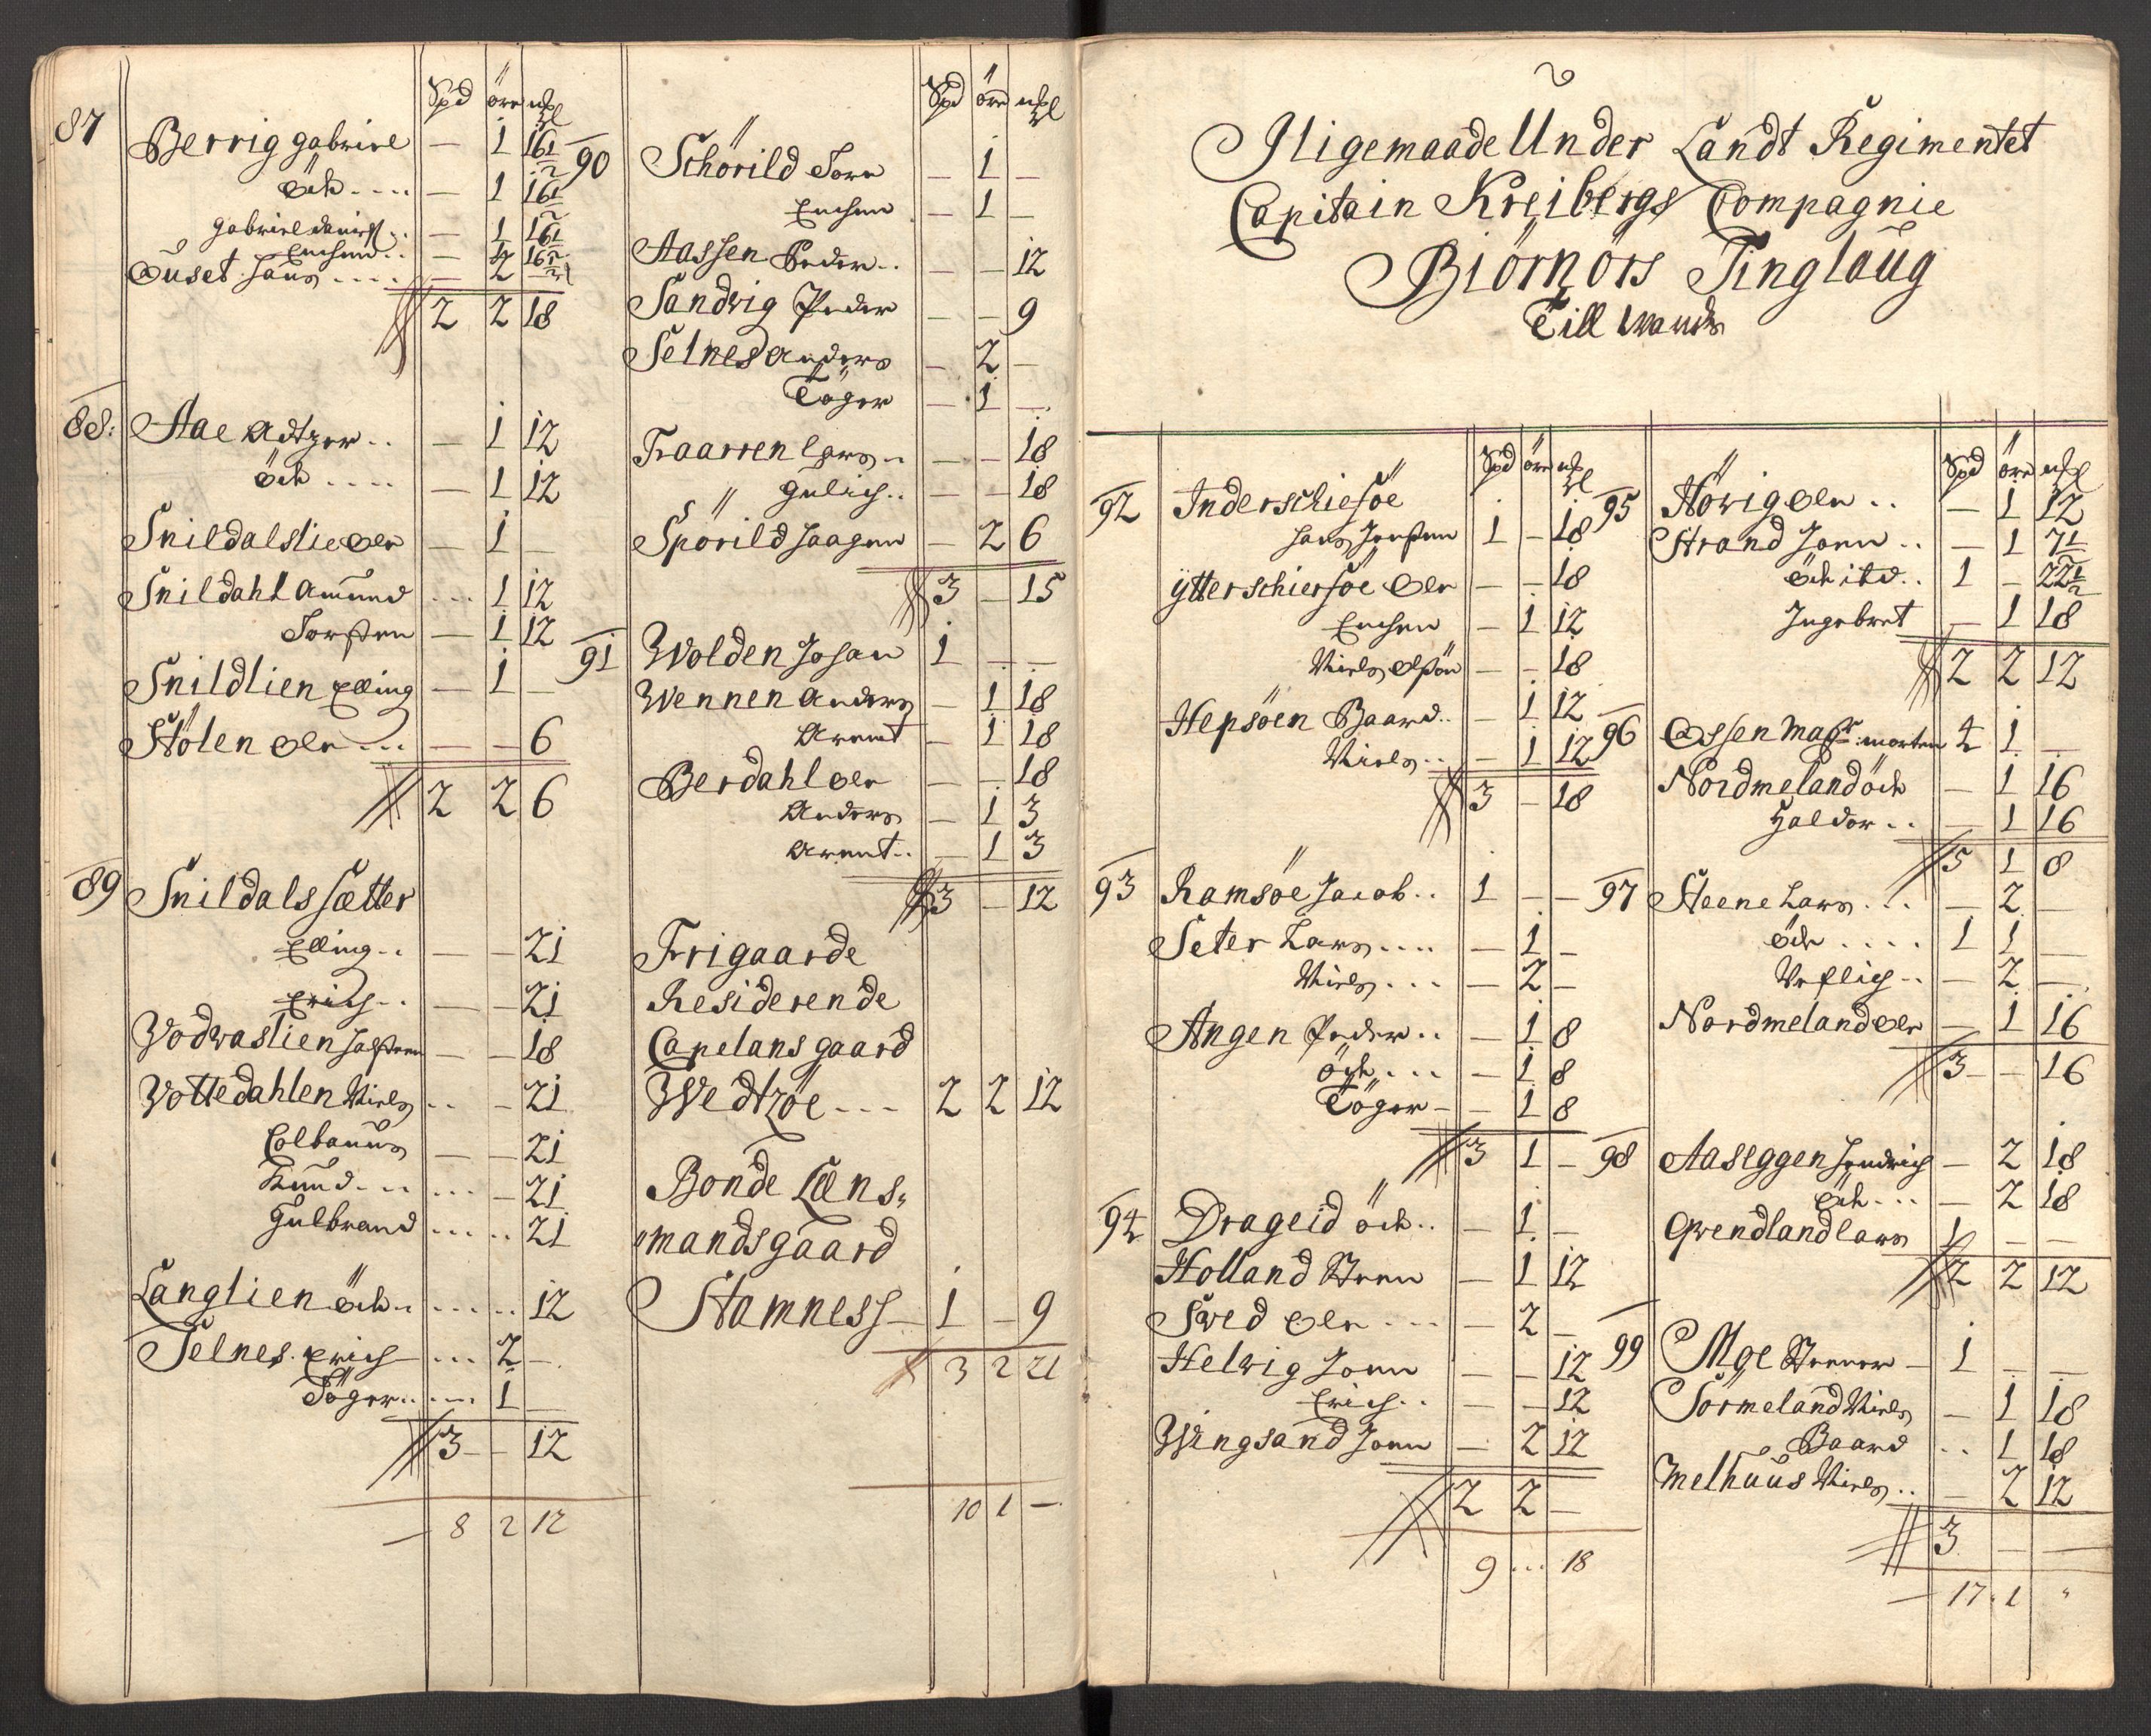 Spd öre mrkl
87 Berrig gabriel — 1 16½
öde .... — 1 16½
gabriel danielß .. — 1 16½
Enchen .. —
Øuset Hans .... — 2 16½
2 2 18
88: Aae Adtzer .. — 1 12
öde .... — 1 12
Snildalslie Ole — 1 —
Snildahl Amund ... 1 12
Torsten — 1 12
Snildlien Elling — 1 —
Stölen Ole ... — — 6
2 2 6
89 Snildals sætter
Elling .. — — 21
Erich .. — — 21
Wodwaslien — — 18
Wottedahlen Niels .. — 21
Colbanus — — 21
Knud ... ... — 21
Gulbrand .... .. 21
Langlien öde .. .... .. 12
Selnes Erich ... 2 —
Töger .. ... 1 —
3 — 12
8 2 12
Spd öre mrkl
90 Schörild Tore — 1 —
Enchen — 1 —
Aassen Peder .. — — 12
Sandwig Peder — — 9
Selnes Anders — 2 —
Töger — 1 —
Traarren Lars .. — — 18
Gulich .. — — 18
Spörild Haagen — 2 6
3 — 15
91 Wolden Johan 1 — —
Wennen Anders — 1 18
Arent — 1 18
Berdahl Ole — — 18
Anders — 1 3
Arent .. — 1 3
3 — 12
Frigaarde
Residerende
Capelans gaard
Wedtzöe ... 2 2 12
Bonde Læns„
„mandsgaard
Stamness — 1 — 9
3 2 21
10 1 —
Iligemaade Under Landt Regimentet
Capitain Kreibergs Compagnie
Biörnörs Tinglaug
Till
Spd öre mrkl
92 Inderschiesöe
Hans Joensen 1 — 18
ÿtterschiersöe Ole — — 18
Enchen — 1 12
Niels Olsön — — 18
Hepsöen Baard .. — 1 12
Niels .. — 1 12
3 — 18
93 Ramsöe Jacob .. 1 — —
Seter Lars .... — 1 —
Niels ... — 2 —
Angen Peder .. — 1 8
öde ... — 1 8
Töger — — 1 8
3 1 —
94 Drageid öde .. — 1 —
Holland Steen — 1 12
Swed Ole .... — 2 —
Helwig Joen — — 12
Erich .. — — 12
Wingsand Joen — 2 12
2 2 —
9 ... 18
Spd öre mrkl
95 Höwig Ole .. — 1 12
Strand Joen .. — 1 7½
öde itd .. 1 — 22½
Ingebret — 1 18
2 2 12
96 Ossen Magr: morten 4 1 —
Nordmeland öde — 1 16
Haldor .. — 1 16
5 1 8
97 Steene Lars ... — 2 —
öde .... 1 1 —
.. — 2 —
Nordmeland Ole — 1 16
3 — 16
98 Aaseggen Hendrich — 2 18
öde ... — 2 18
Qwendland Lars 1 — —
2 2 12
99 Moe Stener — 1 — —
Sörmeland Niels — 1 18
Baard .. 1 18
Melhuus Niels .. — 2 12
3 — —
17 1 „